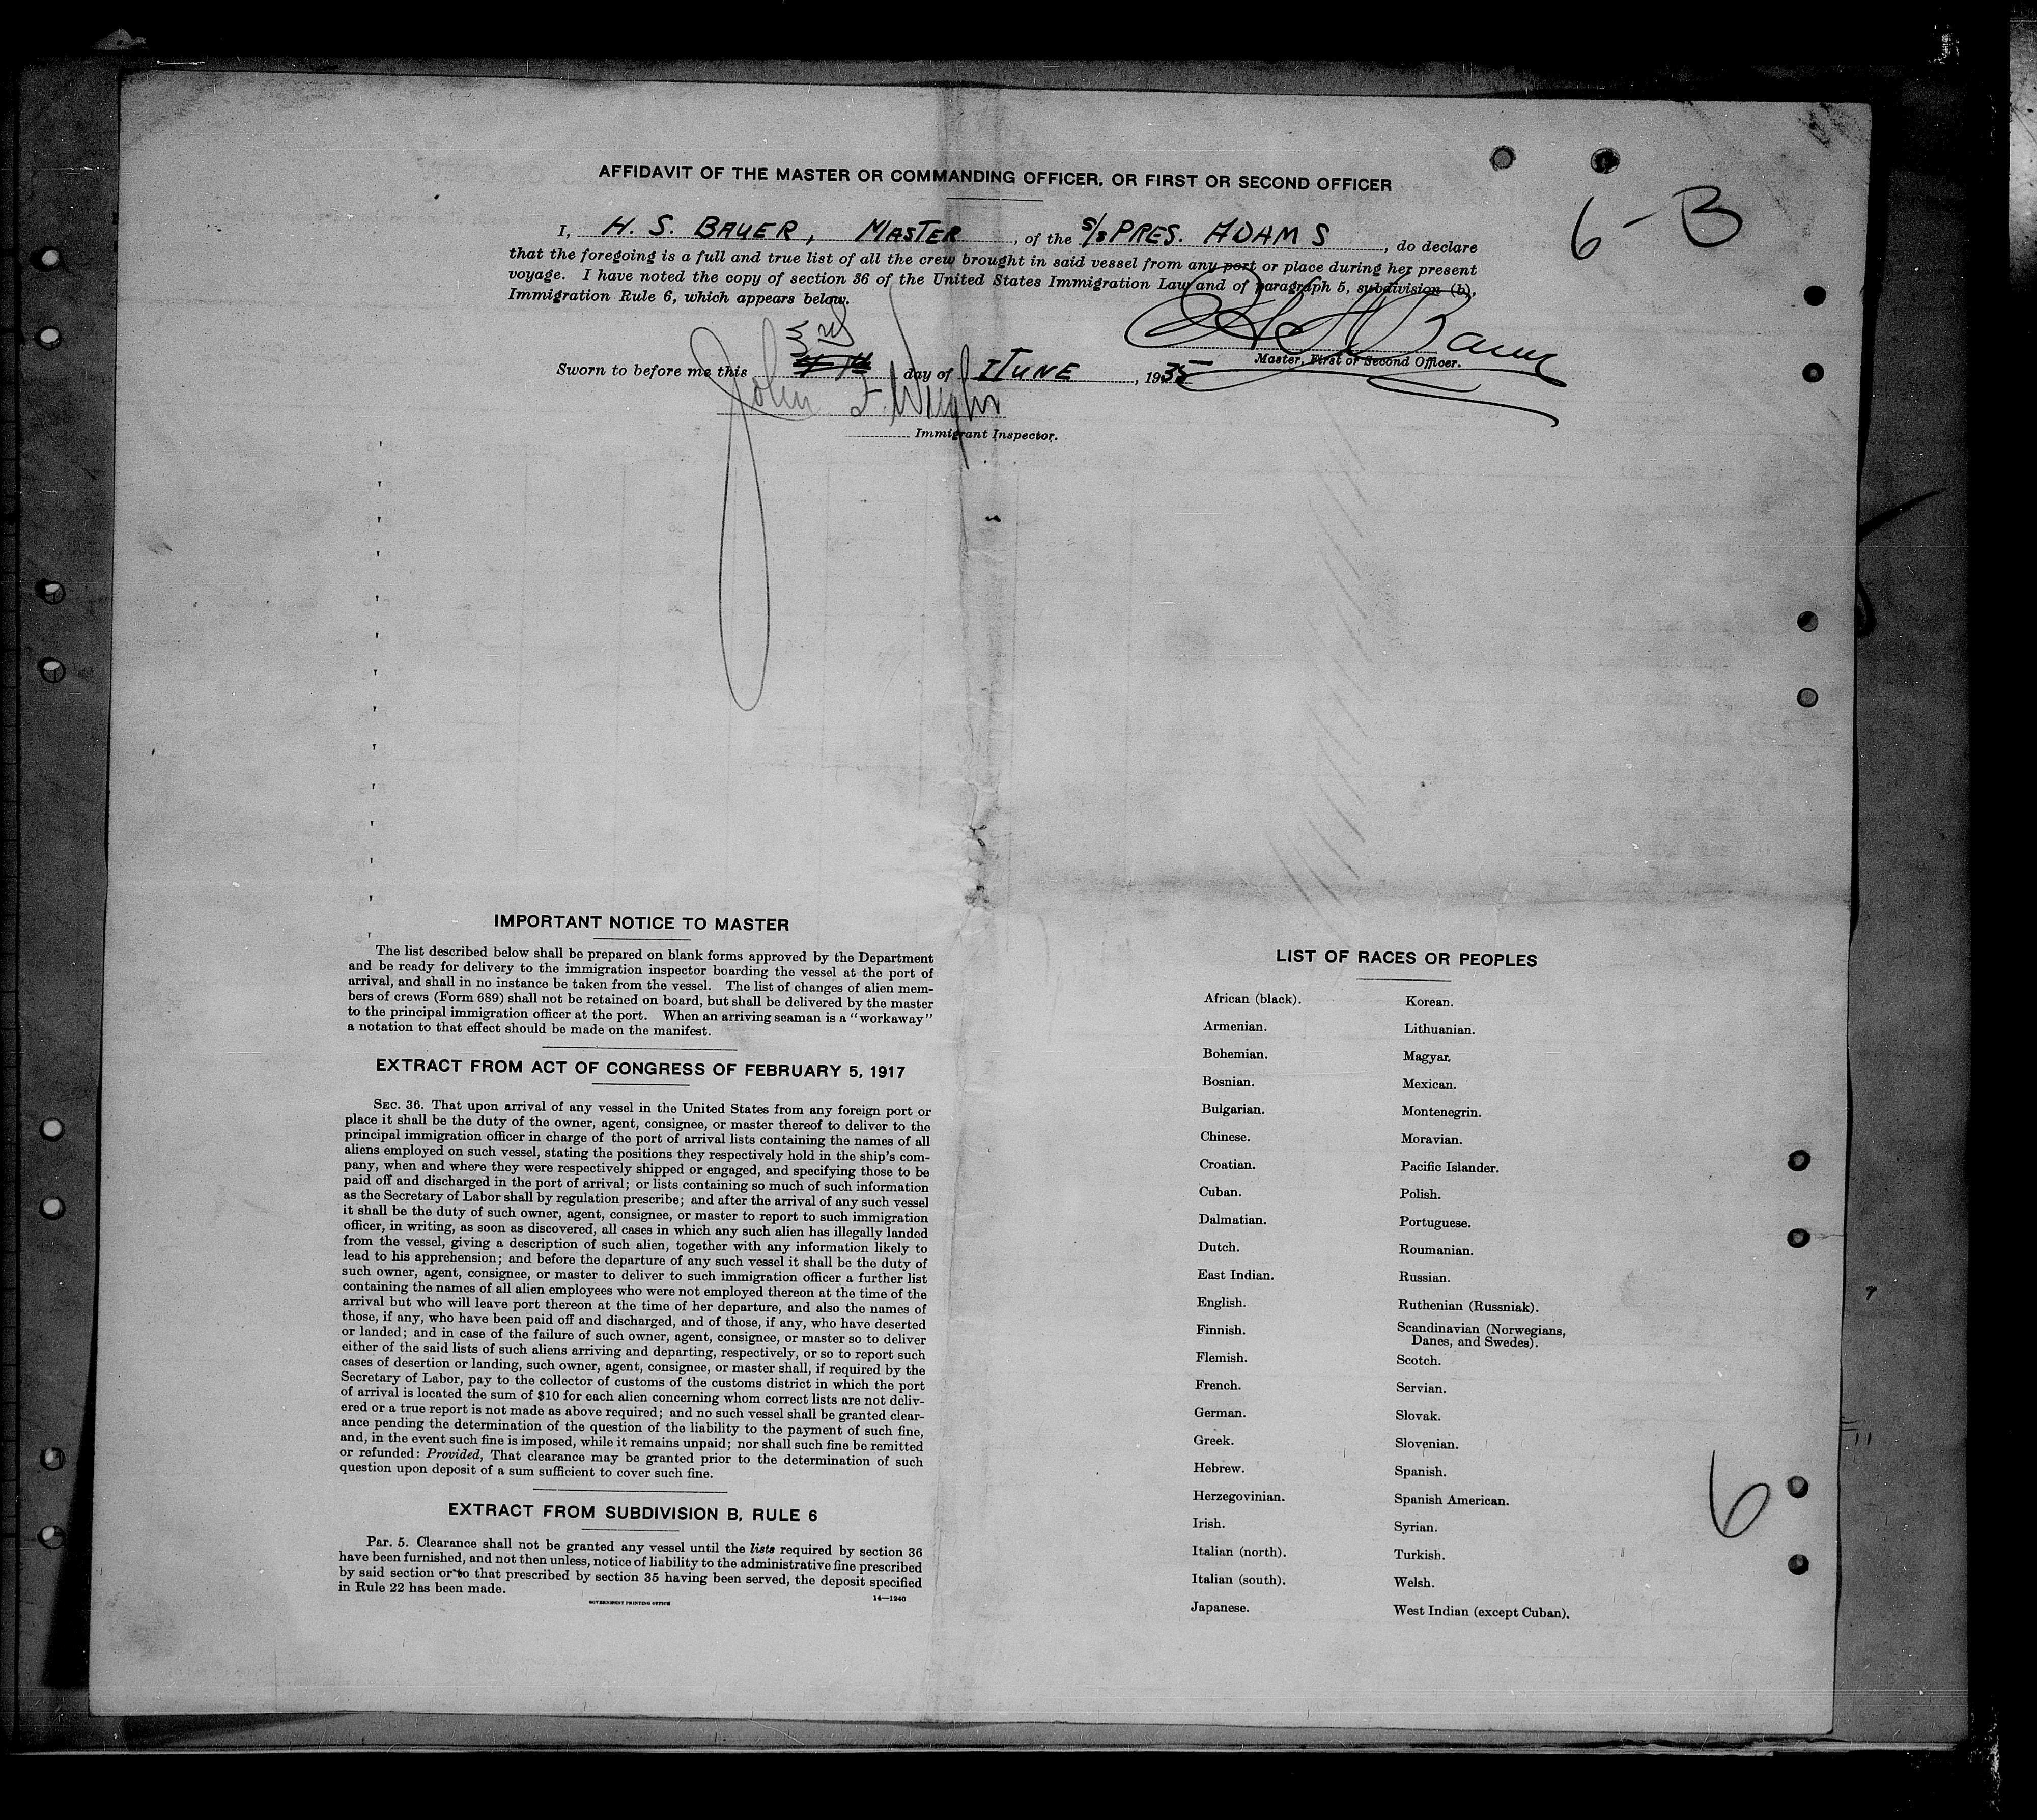 AFFIDAVIT OF THE MASTER OR COMMANDING OFFICER, OR FIRST OR SECOND OFFICER
6-B
I, H. S. BAUER, MASTER, of the S/S PRES. ADAMS, do declare
that the foregoing is a full and true list of all the crew brought in said vessel from any port or place during her present
voyage. I have noted the copy of section 36 of the United States Immigration Law and of paragraph 5, subdivision (b),
Immigration Rule 6, which appears below.
3rd
Bauer
Master, First or Second Officer.
Sworn to before me this 4th day of JUNE, 1935
John F. Wright
Immigrant Inspector.
IMPORTANT NOTICE TO MASTER
The list described below shall be prepared on blank forms approved by the Department
and be ready for delivery to the immigration inspector boarding the vessel at the port of
arrival, and shall in no instance be taken from the vessel. The list of changes of alien mem-
bers of crews (Form 689) shall not be retained on board, but shall be delivered by the master
to the principal immigration officer at the port. When an arriving seaman is a "workaway"
a notation to that effect should be made on the manifest.
EXTRACT FROM ACT OF CONGRESS OF FEBRUARY 5, 1917
SEC. 36. That upon arrival of any vessel in the United States from any foreign port or
place it shall be the duty of the owner, agent, consignee, or master thereof to deliver to the
principal immigration officer in charge of the port of arrival lists containing the names of all
aliens employed on such vessel, stating the positions they respectively hold in the ship's com-
pany, when and where they were respectively shipped or engaged, and specifying those to be
paid off and discharged in the port of arrival; or lists containing so much of such information
as the Secretary of Labor shall by regulation prescribe; and after the arrival of any such vessel
it shall be the duty of such owner, agent, consignee, or master to report to such immigration
officer, in writing, as soon as discovered, all cases in which any such alien has illegally landed
from the vessel, giving a description of such alien, together with any information likely to
lead to his apprehension; and before the departure of any such vessel it shall be the duty of
such owner, agent, consignee, or master to deliver to such immigration officer a further list
containing the names of all alien employees who were not employed thereon at the time of the
arrival but who will leave port thereon at the time of her departure, and also the names of
those, if any, who have been paid off and discharged, and of those, if any, who have deserted
or landed; and in case of the failure of such owner, agent, consignee, or master so to deliver
either of the said lists of such aliens arriving and departing, respectively, or so to report such
cases of desertion or landing, such owner, agent, consignee, or master shall, if required by the
Secretary of Labor, pay to the collector of customs of the customs district in which the port
of arrival is located the sum of $10 for each alien concerning whom correct lists are not deliv-
ered or a true report is not made as above required; and no such vessel shall be granted clear-
ance pending the determination of the question of the liability to the payment of such fine,
and, in the event such fine is imposed, while it remains unpaid; nor shall such fine be remitted
or refunded: Provided, That clearance may be granted prior to the determination of such
question upon deposit of a sum sufficient to cover such fine.
EXTRACT FROM SUBDIVISION B, RULE 6
Par. 5. Clearance shall not be granted any vessel until the lists required by section 36
have been furnished, and not then unless, notice of liability to the administrative fine prescribed
by said section or to that prescribed by section 35 having been served, the deposit specified
in Rule 22 has been made.
GOVERNMENT PRINTING OFFICE
14—1240
LIST OF RACES OR PEOPLES
African (black).
Armenian.
Bohemian.
Bosnian.
Bulgarian.
Chinese.
Croatian.
Cuban.
Dalmatian.
Dutch.
East Indian.
English.
Finnish.
Flemish.
French.
German.
Greek.
Hebrew.
Herzegovinian.
Irish.
Italian (north).
Italian (south).
Japanese.
Korean.
Lithuanian.
Magyar.
Mexican.
Montenegrin.
Moravian.
Pacific Islander.
Polish.
Portuguese.
Roumanian.
Russian.
Ruthenian (Russniak).
Scandinavian (Norwegians,
Danes, and Swedes).
Scotch.
Servian.
Slovak.
Slovenian.
Spanish.
Spanish American.
Syrian.
Turkish.
Welsh.
West Indian (except Cuban).
6